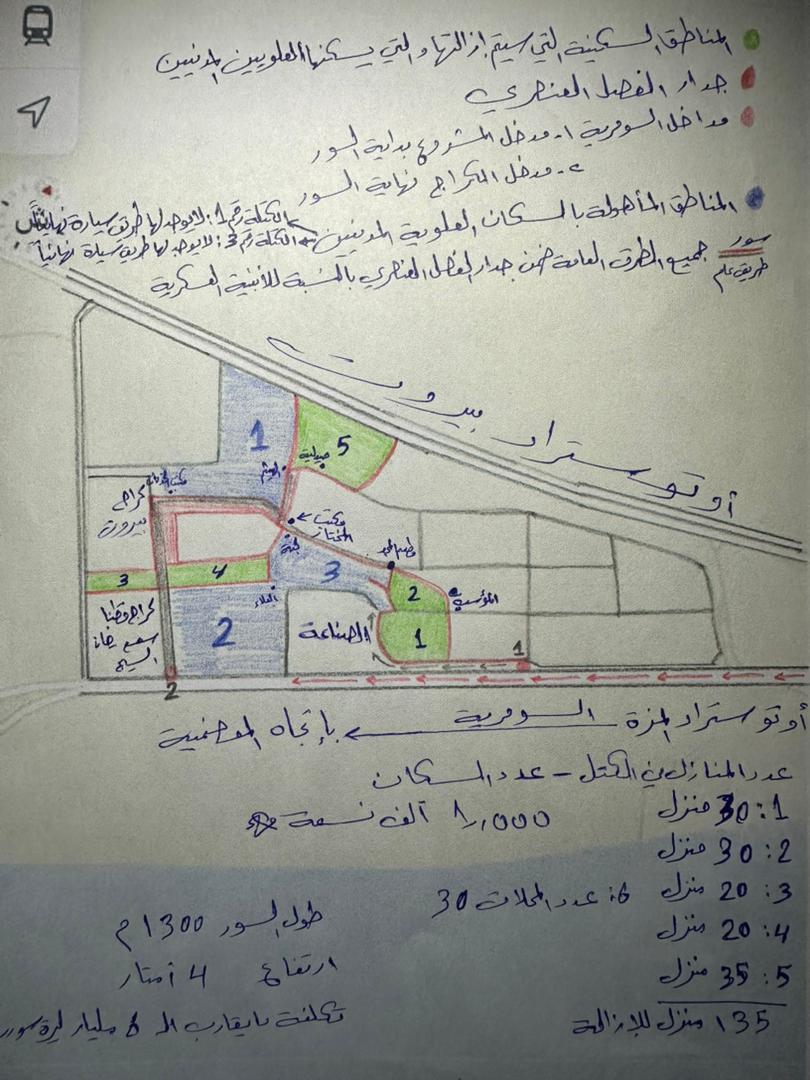 المناطق السكنية التي سيتم ازالتها والتي يسكنها العلويين المدنيين
جدار الفصل العنصري
مداخل السومرية 1- مدخل المشروع بداية السور
2- مدخل الكراج نهاية السور
المناطق المأهولة بالسكان العلوية المدنيين
الكتلة رقم 1: لا يوجد لها طريق سيارة نهائياً
الكتلة رقم 3: لا يوجد لها طريق سيارة نهائياً
سور
طريق عام
جميع الطرق العامة ضمن جدار الفصل العنصري بالنسبة للأبنية العسكرية
أوتوستراد بيروت
1
5
صيدلية
كراج بيروت
مكتب المختار
3
4
3
2
المؤسسة
2
1
كراج قطنا
سعسع خان الشيح
الصناعة
1
2
أوتوستراد المزة السومرية بإتجاه المعضمية
عدد المنازل في الكتل - عدد السكان
1: 30 منزل
1,000 ألف نسمة
2: 30 منزل
3: 20 منزل
6: عدد المحلات 30
4: 20 منزل
5: 35 منزل
135 منزل للإزالة
طول السور 1300 م
ارتفاع 4 أمتار
تكلفة ما يقارب الـ 6 مليار ليرة سورية